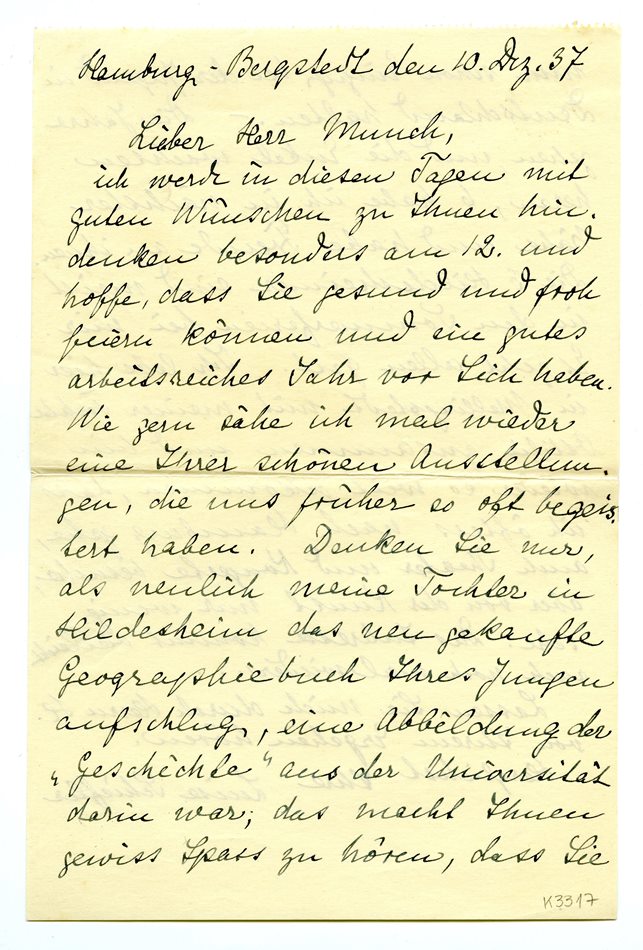 Hamburg-Bergstedt den 10. Dez. 37
Lieber Herr Munch,
ich werde in diesen Tagen mit
guten Wünschen zu Ihnen hin-
denken besonders am 12. und
hoffe, dass Sie gesund und froh
feiern können und ein gutes
arbeitsreiches Jahr vor Sich haben.
Wie gern sähe ich mal wieder
eine Ihrer schönen Ausstellun-
gen, die uns früher so oft begeis-
tert haben. Denken Sie nur,
als neulich meine Tochter in
Hildesheim das neu gekaufte
Geographiebuch Ihres Jungen
aufschlug, eine Abbildung der
„Geschichte" aus der Universität
darin war; das macht Ihnen
gewiss Spass zu hören, dass Sie
K3317